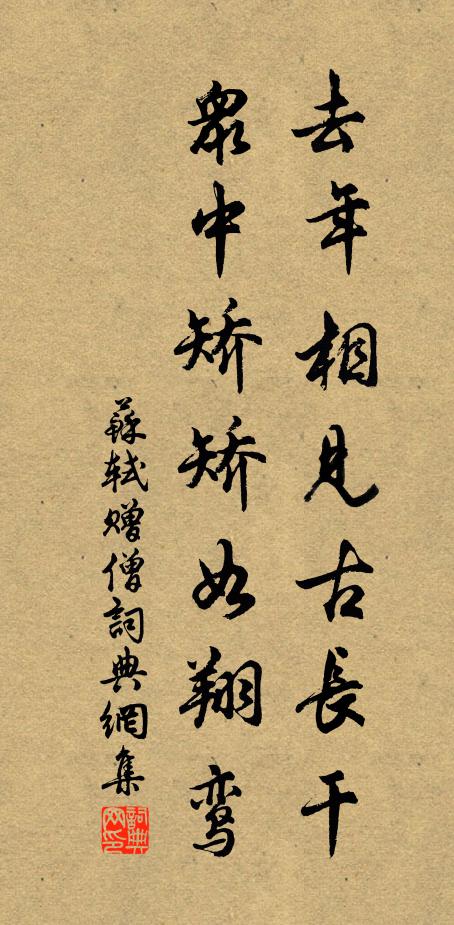 去年相見古長干
衆中矯矯如翔鸾
蘇軾赠僧詞典網集
詞典网印